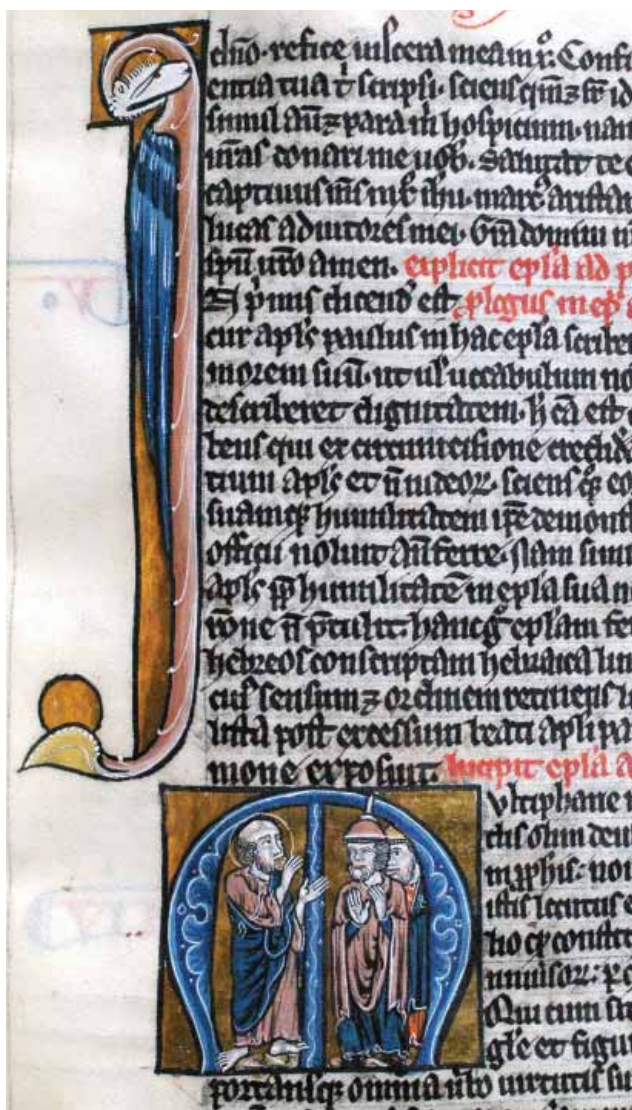 dño. refice uiscera mea in xº. Confi
entia tua t̄ scripsi. sciens qm̄ ⁊ sr̄ id
simul aūt ⁊ para m̄ hospitium. nam
ur̄as donari me uob̄. Salutat te e
captiuus m̄s in xº ihu. marcº aristar
lucas adiutores mei. Gr̄a domini n
spū uro amen. explicit epl̄a ad p
IN p̄mis dicend̄ est plogus in ep̄ a
cur apl̄s paulus in hac epl̄a scriben
morem suū. ut ul̓ uocabulum no
describeret dignitatem. h̓ cā est
breus qui ex circumcisione credid̄
tium apl̄s et n̄ iudeoꝝ. sciens qꝫ eo
suamqꝫ humilitatem ip̄e demonst
officii noluit an̄ferre. Nam simi
apl̄s pp̄ humilitatē in epl̄a sua n
rōne n̄ p̄tulit. hanc g̓ epl̄am fer
hebreos conscriptam hebraica lin
cuꝰ sensum ⁊ ordinem retinens
iuxta post excessum beati apl̄i pa
mone exposuit. Incipit epl̄a a
Multiphane
dis olim deu
in pph̄is. noui
istis locutus e
lio qᷓ constit
uniuisoꝝ. p q
Qui cum sit
gl̄e et figu
portansqꝫ omnia ūbo uirtutis su